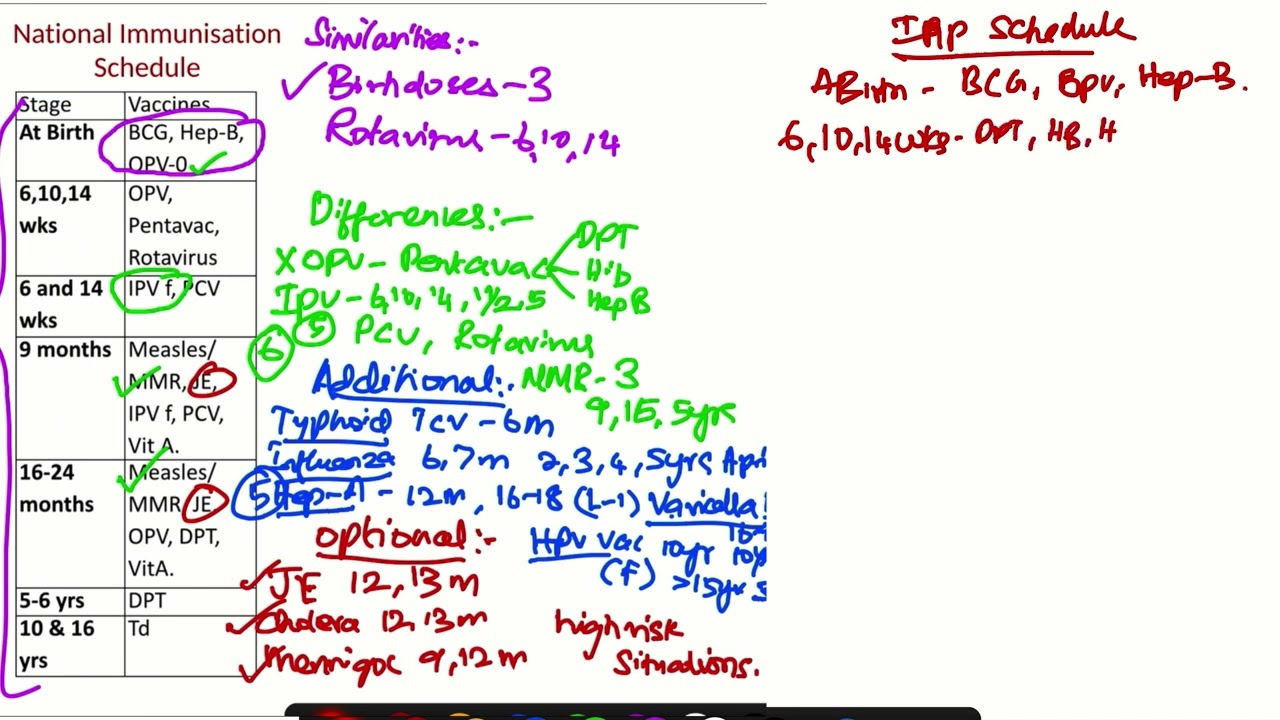 National Immunisation
Schedule
Stage Vaccines
At Birth BCG, Hep-B,
OPV-0
6,10,14
wks
OPV,
Pentavac,
Rotavirus
6 and 14
wks
IPV f, PCV
9 months Measles/
MMR, JE,
IPV f, PCV,
Vit A.
16-24
months
Measles/
MMR, JE,
OPV, DPT,
VitA.
5-6 yrs DPT
10 & 16
yrs
Td
Similarities:-
Birthdoses-3
Rotavirus-6,10,14
Differences:-
X OPV - Pentavac DPT
Hib
HepB
IPV - 6,10,14, 1½,5
6 5 PCV, Rotavirus
MMR-3
9,15,5yrs
Additional:-
Typhoid TCV-6m
Influenza 6,7m 2,3,4,5yrs
5 Hep-A - 12m, 16-18 (L-1) Varicella
HPV vac 10yr
(F) >15yr
Optional:-
JE 12,13m
Cholera 12,13m
9,12m
high risk
Situations.
IAP Schedule
ABirth - BCG, Hep-B.
6,10,14wks- DPT, HB, H